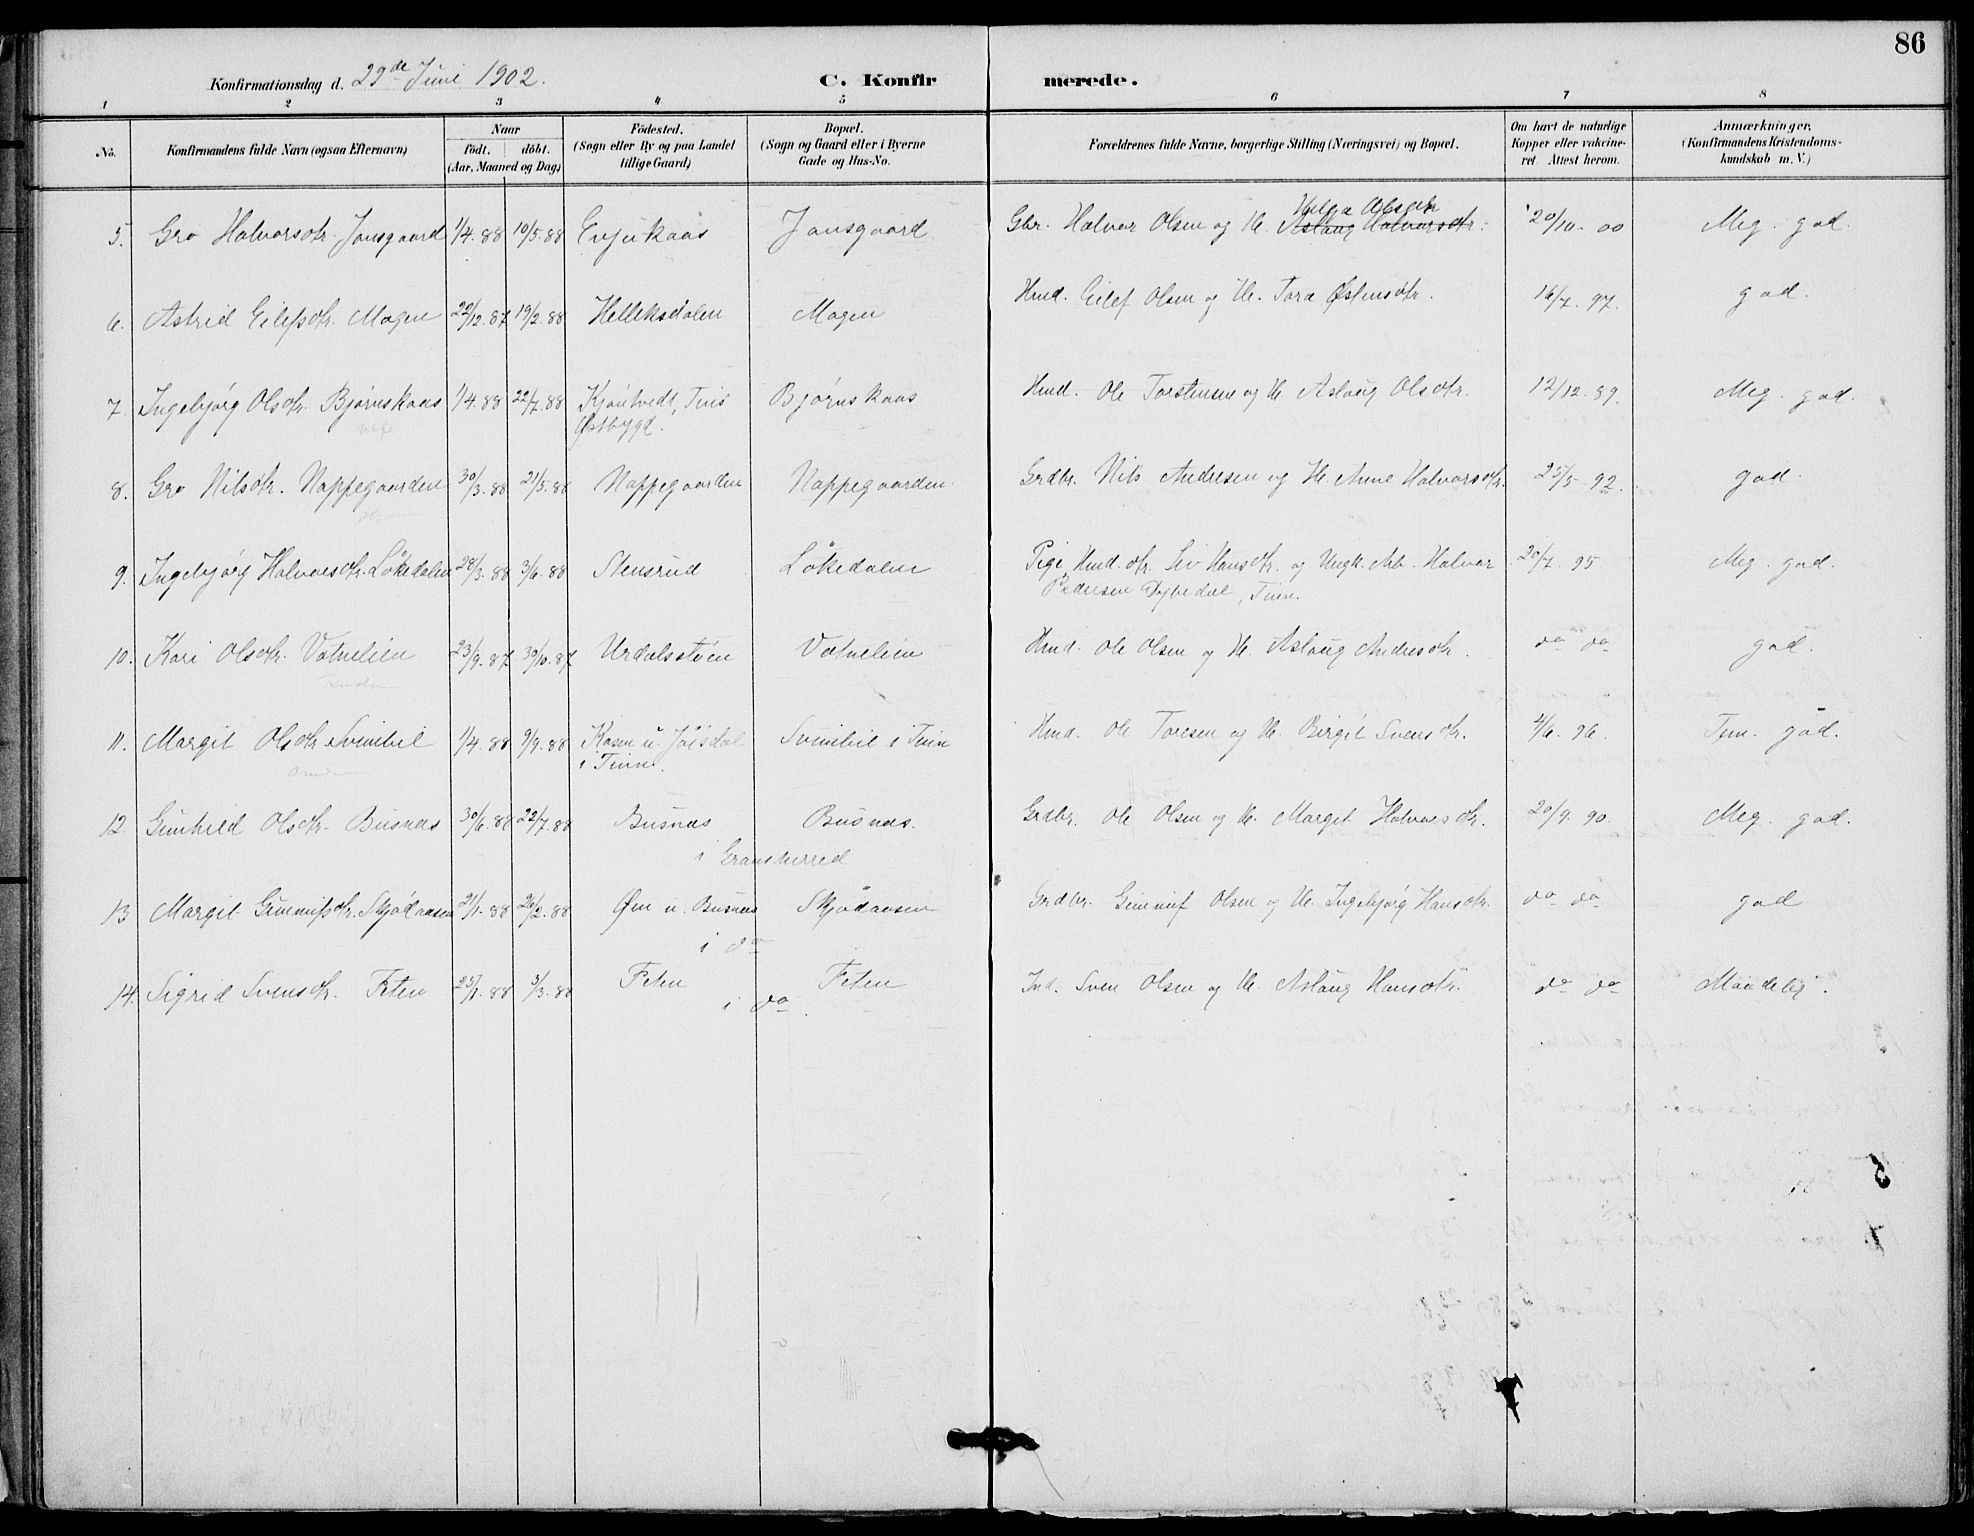 86
Konfirmationsdag d. 29de Juni 1902. C. Konfirmerede.
1 2 3 4 5 6 7 8
No. Konfirmandens fulde Navn (ogsaa Efternavn) Naar födt. döbt. (Aar, Maaned og Dag) Födested. (Sogn eller By og paa Landet tillige Gaard) Bopæl. (Sogn og Gaard eller i Byerne Gade og Hus-No. Forældrenes fulde Navne, borgerlige Stilling (Næringsvei) og Bopæl. Om havt de naturlige Kopper eller vakcineret. Attest herom. Anmærkninger, (Konfirmandens Kristendomskundskab m. V.)
Helga Olsdtr
5. Gro Halvorsdtr. Jonsgaard 1/4.88 10/5.88 Evjukaas Jonsgaard Gbr. Halvor Olsen og H. Aslaug Halvorsdtr. 20/10-00 Meg. god.
6. Astrid Eilefsdtr. Mogen 22/12.87 19/2.88 Helleksdalen Mogen Hmd. Eilef Olsen og H. Tora Østensdtr. 16/7.97. god.
7. Ingebjørg Olsdtr. Bjørnskaas 1/4.88 22/7.88 Kjøntvedt, Tins Bjørnskaas Hmd. Ole Torstensen og H. Aslaug Olsdtr. 12/12.89. Meg. god.
Østbygd.
8. Gro Nilsdtr. Nappegaarden 30/3.88 21/5.88 Nappegaarden Nappegaarden Grdbr. Nils Andresen og H. Anne Halvorsdtr. 25/5-92. god.
9. Ingebjørg Halvorsdtr. Løkedalen 28/3.88 3/6.88 Stensrud Løkedalen Pige Hmd. dtr. Liv Hansdtr. og Ungk. Arb. Halvor 20/7.95 Meg. god.
Pedersen Dybedal, Tinn.
10. Kari Olsdtr. Vatnelien 23/9.87 30/10.87 Urdalsstøen Vatnelien Hmd. Ole Olsen og H. Aslaug Andresdtr. do do god.
11. Margit Olsdtr. Svinibil 1/4.88 9/9.88 Kasen u. Jøisdal Svinibil i Tinn Hmd. Ole Toresen og H. Birgit Svensdtr. 4/6.96. Tem. god.
i Tinn.
12. Gunhild Olsdtr. Busnes 30/6.88 22/7.88 Busnes Busnes. Grdbr. Ole Olsen og H. Margit Halvorsdtr. 20/9.90. Meg. god.
i Gransherred
13 Margit Gunnufsdtr. Skjødaasen 21/1-88 26/2.88 Øm u. Busnes Skjødaasen Grdbr. Gunnuf Olsen og H. Ingebjørg Hansdtr. do do god
i do
14. Sigrid Svensdtr. Feten 25/1.88 3/3.88 Feten Feten Ind. Sven Olsen og H. Aslaug Hansdtr. do do Maadelig.
i do.